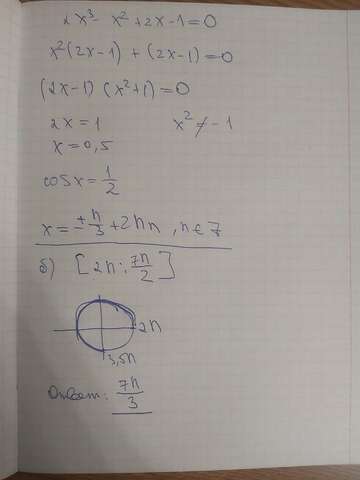 2x³ - x² + 2x - 1 = 0
x²(2x-1) + (2x-1) = 0
(2x-1) (x²+1) = 0
2x = 1 x² ≠ -1
x = 0,5
cos x = 1/2
x = ± π/3 + 2πn, n ∈ Z
б) [2π; 7π/2]
2π
3,5π
Ответ: 7π/3